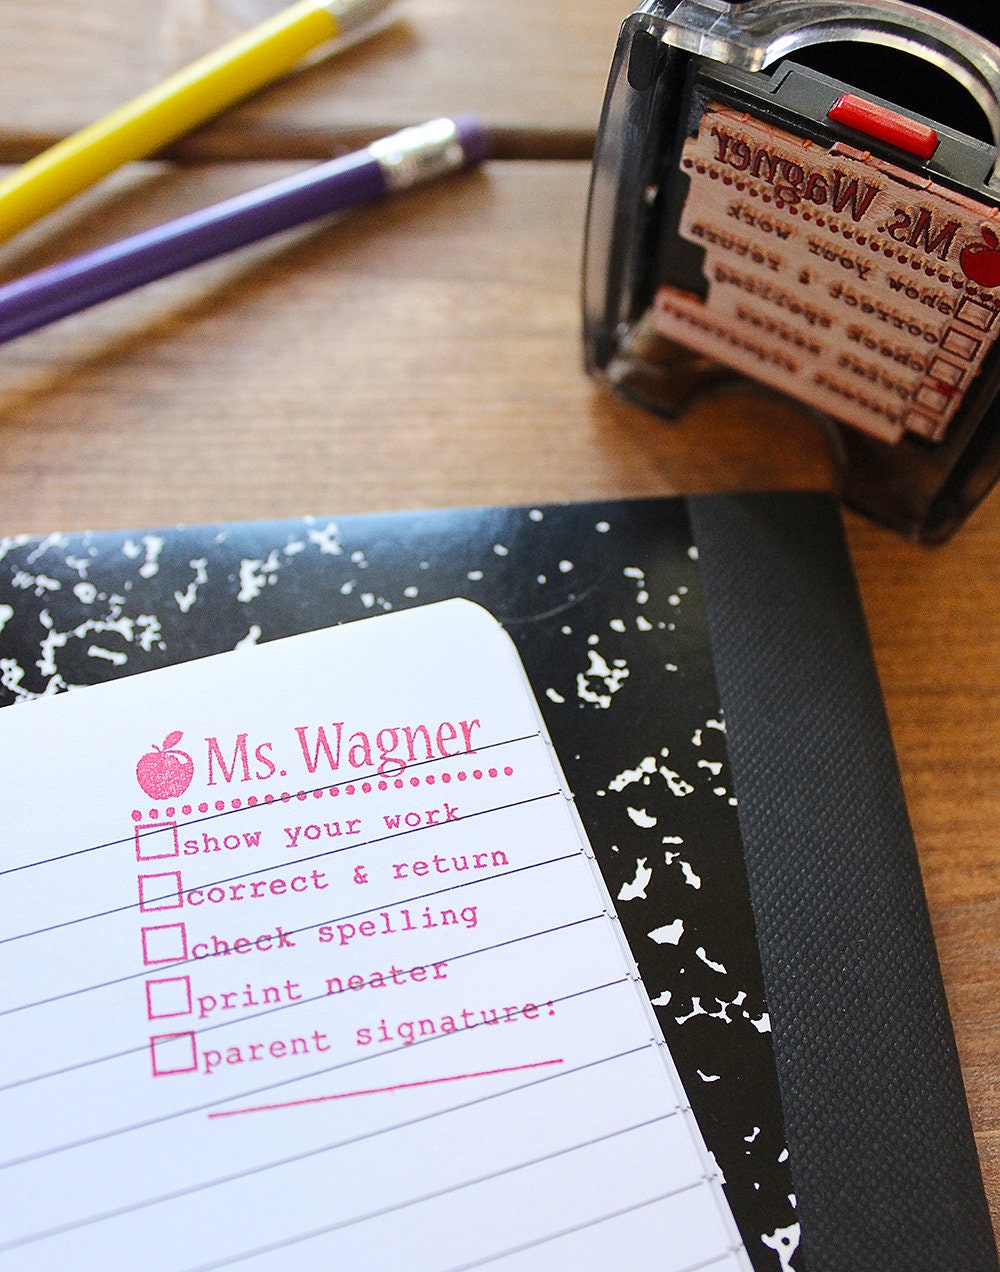 Ms. Wagner
show your work
correct & return
check spelling
print neater
parent signature:
Ms. Wagner
show your work
correct & return
check spelling
print neater
parent signature: